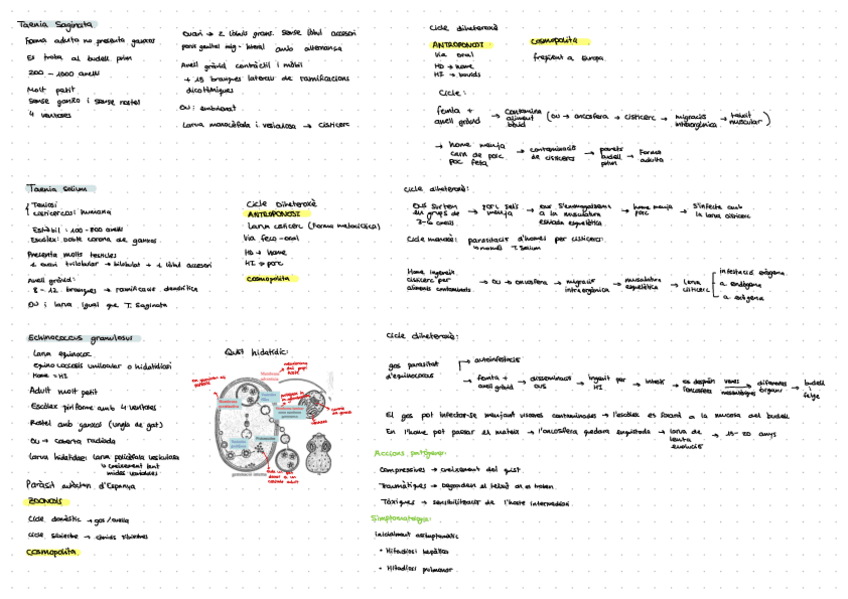 Taenia Saginata
Forma adulta no presenta ganxos
Es troba al budell prim
200 - 1000 anells
Molt petit
Sense ganxo i sense rostel
4 ventoses
Ovari → 2 lòbuls grans. Sense lòbul accesori
pors genitals mig-lateral amb alternança
Anell gràvid contràctil i mòbil
+ 15 branques laterals de ramificacions
dicotòmiques
Ou: embrionat
Larva monocèfala i vesiculosa → cisticerc
Cicle diheteroxè
ANTROPONOSI
Via oral
HD → home
HI → bòvids
Cosmopolita
freqüent a Europa.
Cicle:
femta +
anell gràvid → contamina
aliment
bòvid (ou → oncosfera → cisticerc → migració
intraorgànica → teixit
muscular)
→ home menja
carn de porc
poc feta → contaminació
de cisticerc → parets
budell
prim → forma
adulta
Taenia solium
Teniosi
cisticercosi humana
Estròbil: 100 - 800 anells
Escòlex: doble corona de ganxos.
Presenta molts testicles
1 ovari trilobular → bilobulat + 1 lòbul accesori
Anell gràvid:
8 - 12 branques → ramificació dendrítica
Ou i larva igual que T. Saginata
Cicle Diheteroxè
ANTROPONOSI
Larva cisticerc (forma metacíclica)
Via feco-oral
HD → home
HI → porc
cosmopolita
Cicle diheteroxè:
Ous surten
en grups de → porc se'ls
menja → ous s'emmagatzemen
a la musculatura
estriada esquelètica → home menja
porc → s'infecta amb
la larva cisticerc
Cicle monoxè: parasitació d'homes per cisticerc:
→ només T. Solium
Home ingereix
cisticerc per
aliments contaminats → ou → oncosfera → migració
intraorgànica → musculatura
esquelètica → larva
cisticerc
infestació exògena
a endògena
a exògena
Echinococcus granulosus
Larva equinococ
equinococcosis unilocular o hidatidosi
Home = HI
Adult molt petit
Escòlex piriforme amb 4 ventoses
Rostel amb ganxos (ungla de gat)
Ou → coberta radiada
Larva hidatídica: larva policèfala vesiculosa
↳ creixement lent
mides variables
Paràsit autòcton d'Espanya
ZOONOSIS
Cicle domèstic → gos/ovella
Cicle silvestre → cànids silvestres
Cosmopolita
Quist hidatídic:
Cicle diheteroxè:
gos parasitat
d'equinococcus → autoinfestació
→ femta +
anell gràvid → disseminació
ous → ingerit per
HI → budell → es desprèn
l'oncosfera → venes
mesentèriques → diferents
òrgans → budell
i
fetge
El gos pot infectar-se menjant vísceres contaminades → l'escòlex es fixarà a la mucosa del budell
En l'home pot passar el mateix → l'oncosfera quedarà enquistada → larva de
lenta
evolució → 15-20 anys
Accions patògenes:
Compressives → creixement del quist.
Traumàtiques → degraden el teixit on es troben.
Tòxiques → sensibilització de l'hoste intermediari.
Simptomatologia:
Inicialment assimptomàtic
• Hidatidosi hepàtica
• Hidatidosi pulmonar